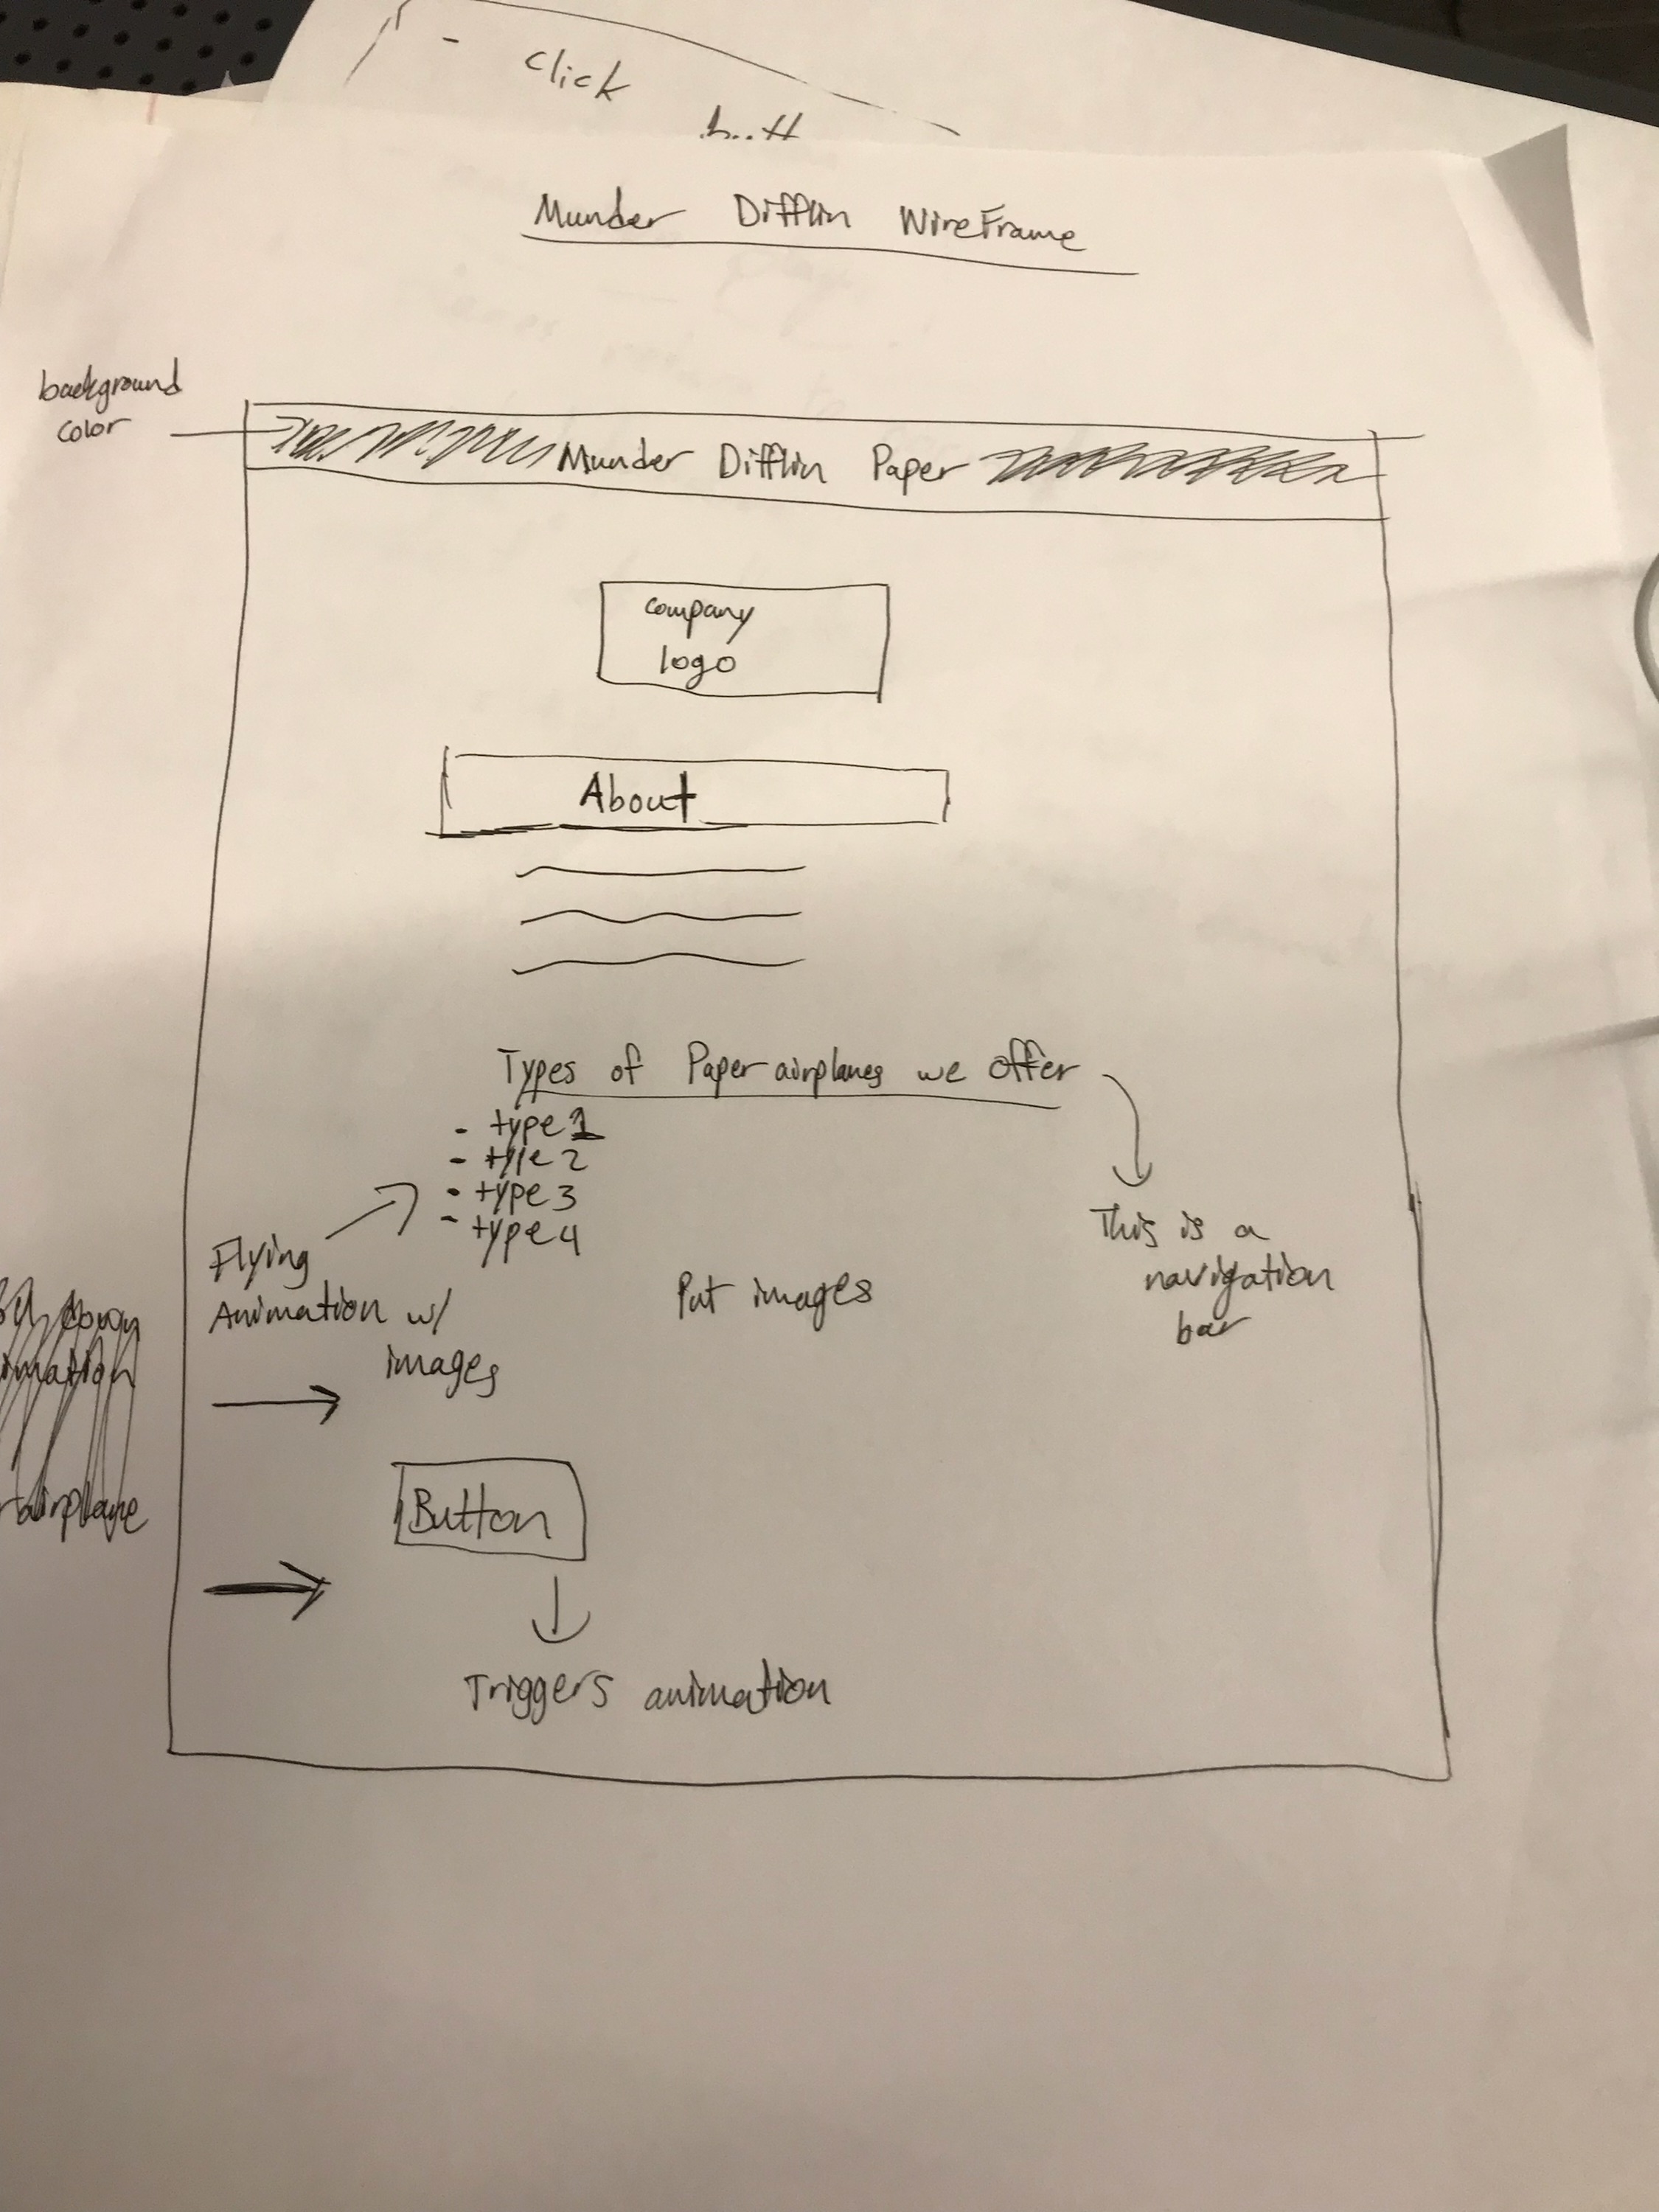 - click
Munder Difflin WireFrame
background
color
Munder Difflin Paper
company
logo
About
Types of Paper airplanes we offer
- type 1
- type 2
- type 3
- type 4
This is a
navigation
bar
Flying
Animation w/
images
Put images
Button
Triggers animation
down
airplane